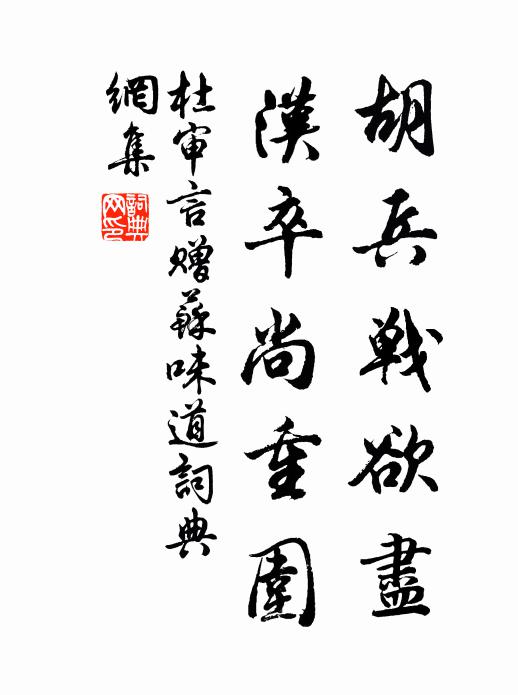 胡兵戰欲盡
漢卒尚重圍
杜审言贈蘇味道詞典
網集
詞典网印